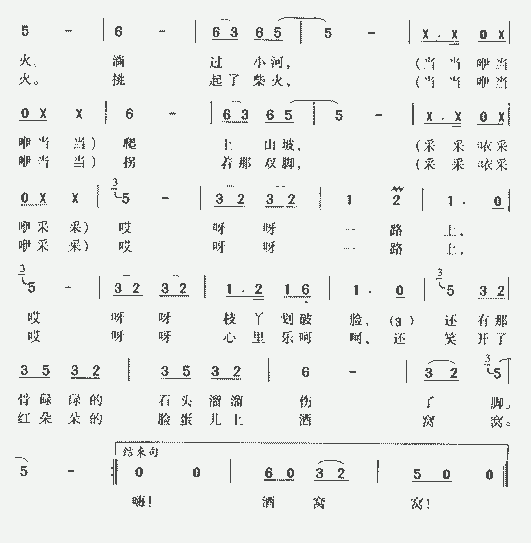 5 - | 6 - | 6 3 6 5 | 5 - | X . X 0 X
火, 淌 过 小河, (当 当 咿当
火。 挑 起了 柴火, (当 当 咿当
0 X X | 6 - | 6 3 6 5 | 5 - | X . X 0 X
咿当 当) 爬 上 山坡, (采 采 哝采
咿当 当) 拐 着那 双脚, (采 采 哝采
0 X X | 3 5 - | 3 2 3 2 | 1 2 | 1 . 0
咿采 采) 哎 呀 呀 一 路 上,
咿采 采) 哎 呀 呀 一 路 上,
3 5 - | 3 2 3 2 | 1 . 2 1 6 | 1 . 0 | 3 5 3 2
哎 呀 呀 枝 丫 划破 脸, (3) 还 有那
哎 呀 呀 心 里 乐呵 呵, 还 笑 开了
3 5 3 2 | 3 5 3 2 | 6 - | 3 2 3 5
碌 的 石头 溜溜 伤 了 脚。
红朵 朵的 脸蛋 儿上 酒 窝 窝。
5 - :| 结束句 0 0 | 6 0 3 2 | 5 0 0
嗨! 酒 窝 窝!